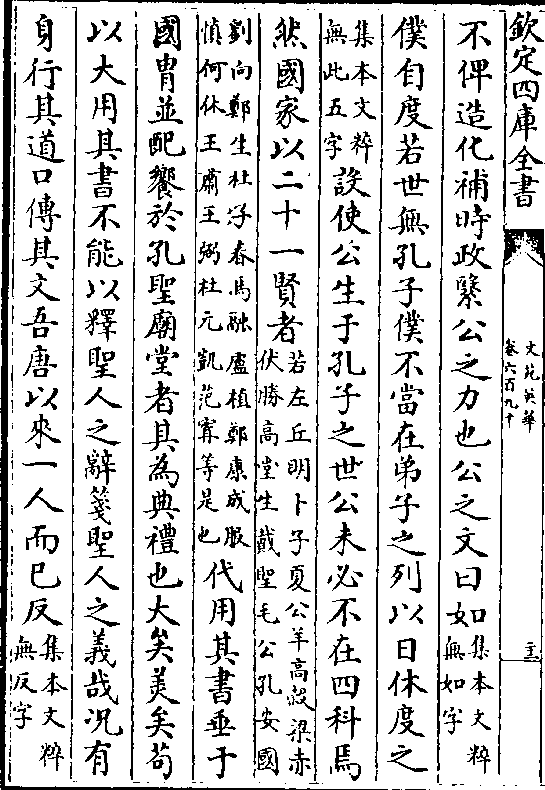 欽定四庫全書
文苑英華
卷六百九十
不俾造化補時政繄公之力也公之文曰如集本文粹無如字
僕自度若世無孔子僕不當在弟子之列以日休度之
集本文粹無此五字設使公生于孔子之世公未必不在四科焉
然國家以二十一賢者若左丘明卜子夏公羊高穀梁赤伏勝高堂生戴聖毛公孔安國
劉向鄭生杜子春馬融盧植鄭康成服慎何休王肅王弼杜元凱范寗等是也代用其書垂于
國冑並配饗於孔聖廟堂者其為典禮也大矣美矣苟
以大用其書不能以釋聖人之辭箋聖人之義哉况有
身行其道口傳其文吾唐以來一人而已反集本文粹無反字